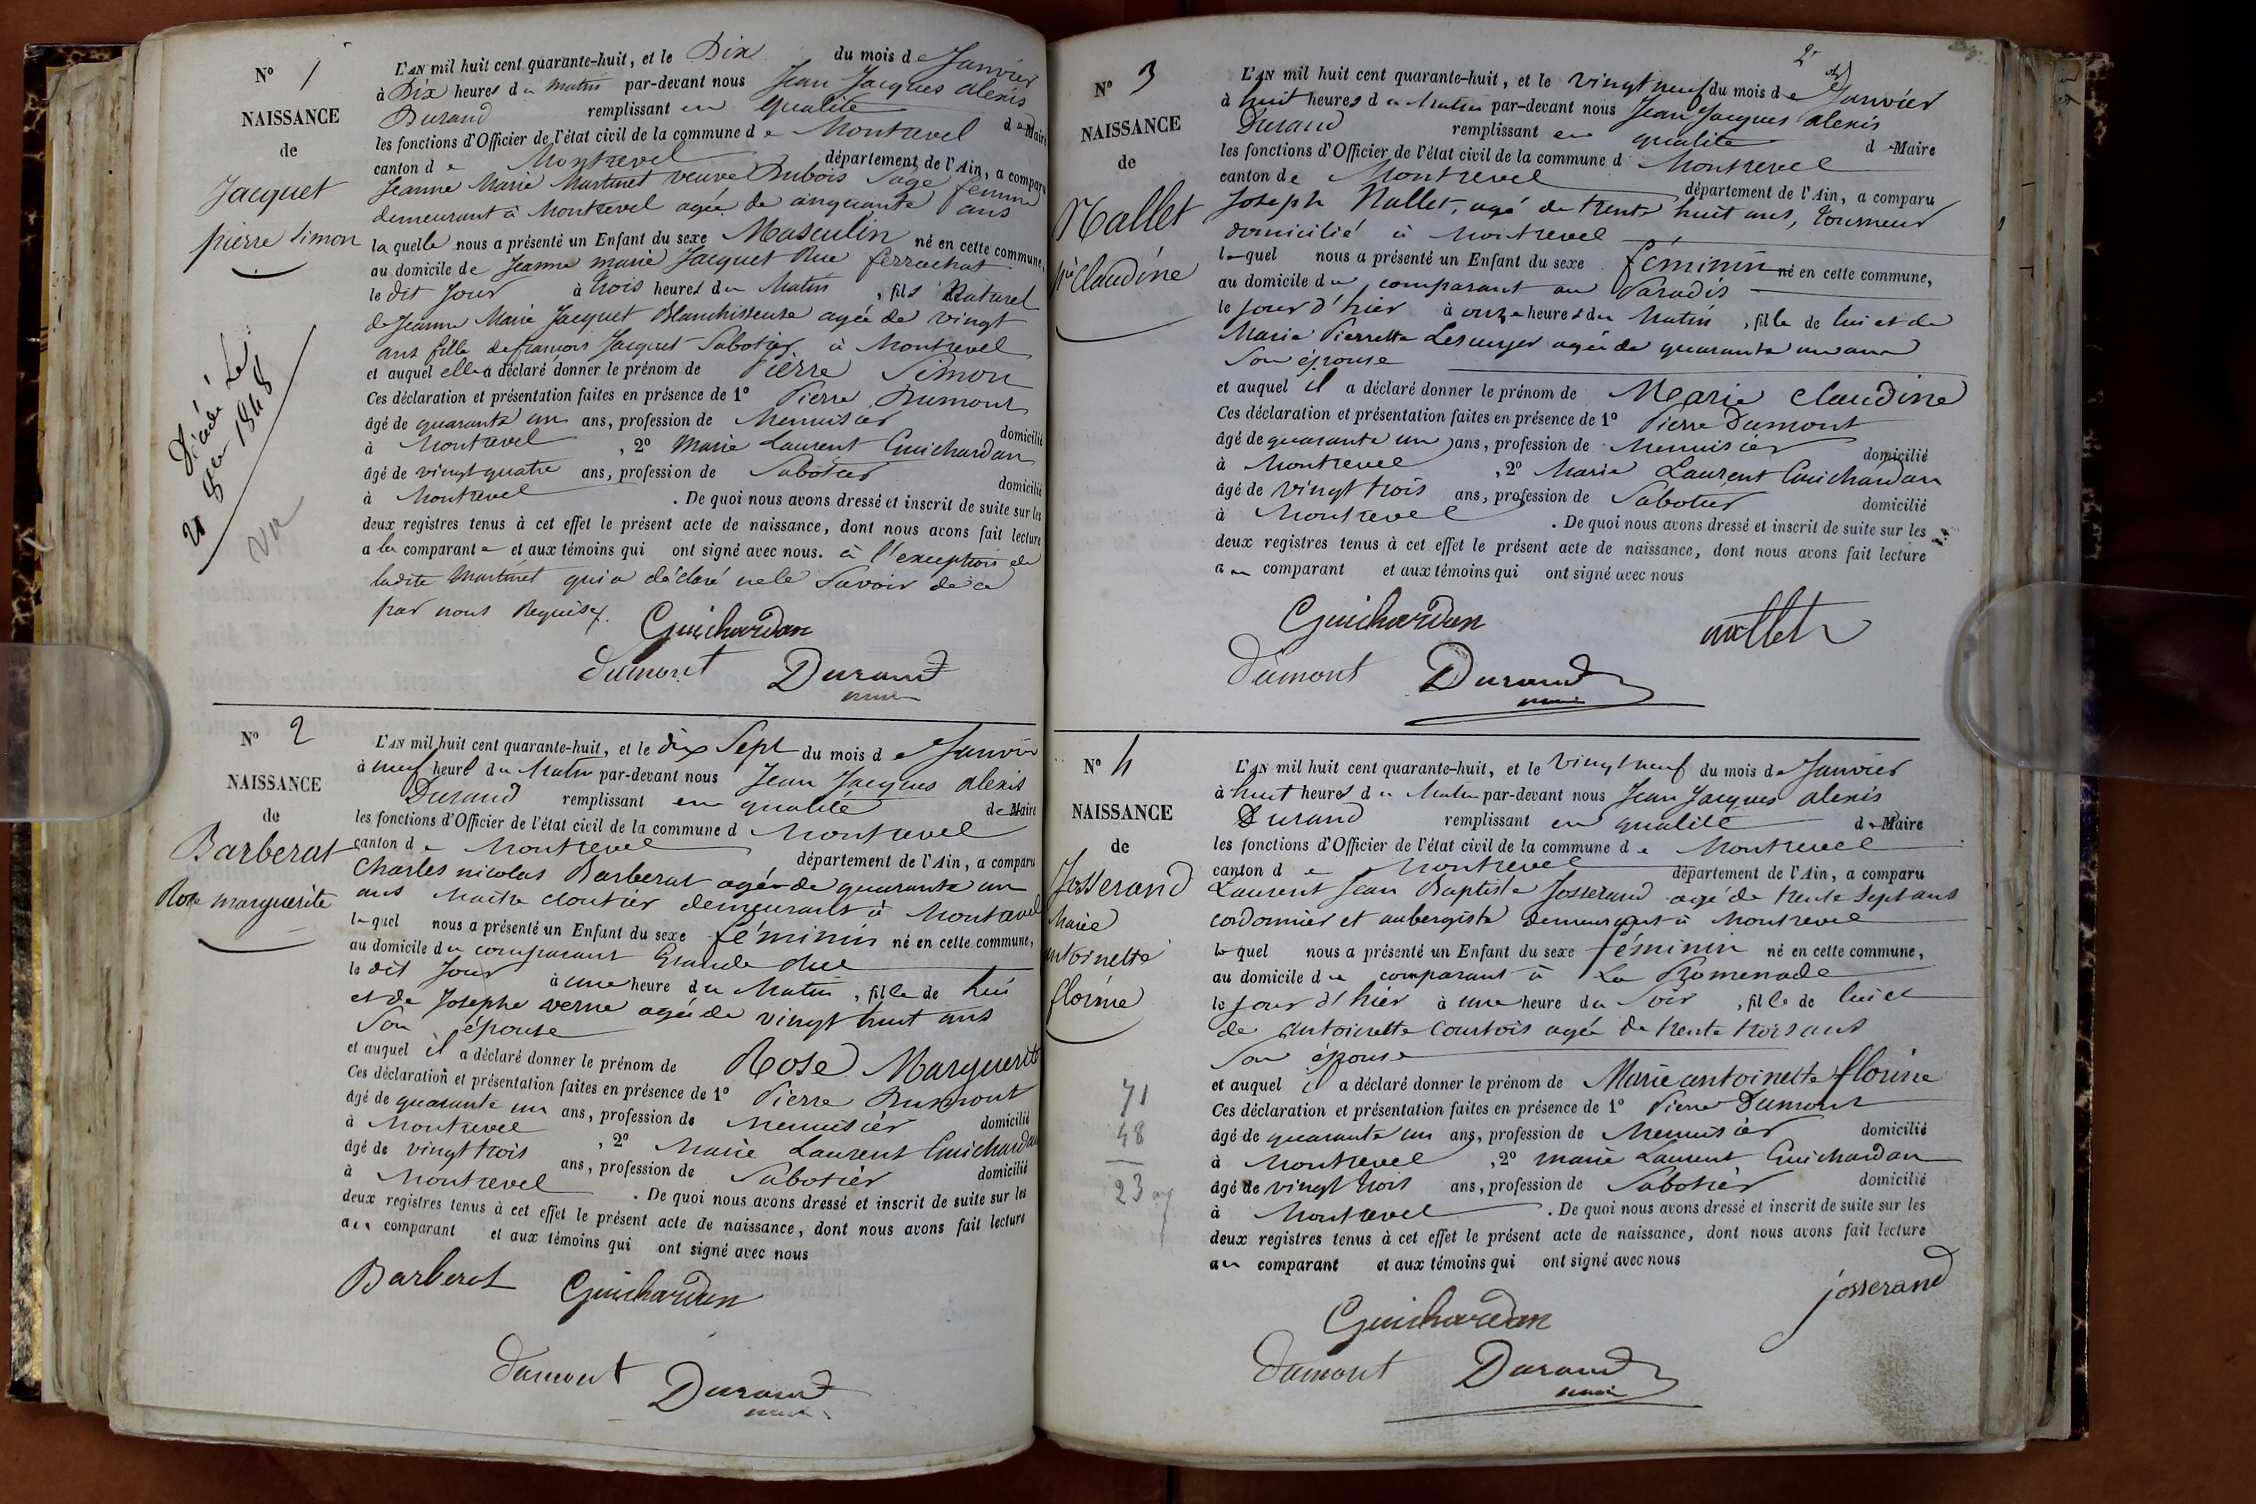 N° 1
NAISSANCE
de
Jacquet
pierre Simon
Décédé Le
21 8bre 1848
vu
L'AN mil huit cent quarante-huit, et le Dix du mois de Janvier
à Dix heures du matin par-devant nous Jean Jacques alexis
Durand remplissant en qualité de Maire
les fonctions d'Officier de l'état civil de la commune de Montrevel
canton de Montrevel département de l'Ain, a comparu
Jeanne Marie Martinet veuve Dubois Sage femme
demeurant à Montrevel agée de cinquante ans
laquelle nous a présenté un Enfant du sexe Masculin né en cette commune,
au domicile de Jeanne marie Jacquet Rue ferrachat
le dit Jour à trois heures du Matin, fils Naturel
de Jeanne Marie Jacquet Blanchisseuse agée de vingt
ans fille de francois Jacquet Sabotier à Montrevel
et auquel elle a déclaré donner le prénom de Pierre Simon
Ces déclaration et présentation faites en présence de 1° Pierre Dumont
âgé de quarante un ans, profession de Menuisier domicilié
à Montrevel, 2° Marie Laurent Guichardan
âgé de vingt quatre ans, profession de Sabotier domicilié
à Montrevel. De quoi nous avons dressé et inscrit de suite sur les
deux registres tenus à cet effet le présent acte de naissance, dont nous avons fait lecture
a la comparante et aux témoins qui ont signé avec nous. à l'exception de
ladite Martinet qui a déclaré ne le Savoir de ce
par nous Requise.
Guichardan
Dumont Durand
maire
N° 2
NAISSANCE
de
Barberat
Rose marguerite
L'AN mil huit cent quarante-huit, et le dix Sept du mois de Janvier
à neuf heures du Matin par-devant nous Jean Jacques alexis
Durand remplissant en qualité de Maire
les fonctions d'Officier de l'état civil de la commune d Montrevel
canton de Montrevel département de l'Ain, a comparu
Charles nicolas Barberat agé de quarante un
ans Maitre cloutier demeurant à Montrevel
lequel nous a présenté un Enfant du sexe féminin né en cette commune,
au domicile du comparant Grande Rue
le dit Jour à une heure du Matin, fille de lui
et de Josephe verne agée de vingt huit ans
Son épouse
et auquel il a déclaré donner le prénom de Rose Marguerite
Ces déclaration et présentation faites en présence de 1° Pierre Dumont
âgé de quarante un ans, profession de Menuisier domicilié
à Montrevel, 2° Marie Laurent Guichardan
âgé de vingt trois ans, profession de Sabotier domicilié
à Montrevel. De quoi nous avons dressé et inscrit de suite sur les
deux registres tenus à cet effet le présent acte de naissance, dont nous avons fait lecture
au comparant et aux témoins qui ont signé avec nous
Barberot Guichardan
Dumont Durand
maire
N° 3
NAISSANCE
de
Nallet
Mie Claudine
L'AN mil huit cent quarante-huit, et le vingt neuf du mois de Janvier
à huit heures du Matin par-devant nous Jean Jacques alexis
Durand remplissant en qualité de Maire
les fonctions d'Officier de l'état civil de la commune d Montrevel
canton de Montrevel département de l'Ain, a comparu
Joseph Nallet, agé de trente huit ans, tourneur
domicilié à Montrevel
lequel nous a présenté un Enfant du sexe féminin né en cette commune,
au domicile du comparant au Paradis
le jour d'hier à onze heures du Matin, fille de lui et de
Marie Pierrette Lesurger agée de quarante un ans
Son épouse
et auquel il a déclaré donner le prénom de Marie Claudine
Ces déclaration et présentation faites en présence de 1° Pierre Dumont
âgé de quarante un ans, profession de Menuisier domicilié
à Montrevel, 2° Marie Laurent Guichardan
âgé de vingt trois ans, profession de Sabotier domicilié
à Montrevel. De quoi nous avons dressé et inscrit de suite sur les
deux registres tenus à cet effet le présent acte de naissance, dont nous avons fait lecture
au comparant et aux témoins qui ont signé avec nous
Guichardan nallet
Dumont Durand
maire
N° 4
NAISSANCE
de
Josserand
Marie
antoinette
florine
71
48
23
L'AN mil huit cent quarante-huit, et le vingt neuf du mois de Janvier
à huit heures du Matin par-devant nous Jean Jacques alexis
Durand remplissant en qualité de Maire
les fonctions d'Officier de l'état civil de la commune de Montrevel
canton de Montrevel département de l'Ain, a comparu
Laurent Jean Baptiste Josserand agé de trente Sept ans
cordonnier et aubergiste demeurant à Montrevel
lequel nous a présenté un Enfant du sexe féminin né en cette commune,
au domicile du comparant à La Promenade
le jour d'hier à une heure du Soir, fille de lui et
de antoinette Courtois agée de trente trois ans
Son épouse
et auquel il a déclaré donner le prénom de Marie antoinette florine
Ces déclaration et présentation faites en présence de 1° Pierre Dumont
âgé de quarante un ans, profession de Menuisier domicilié
à Montrevel, 2° marie Laurent Guichardan
âgé de vingt trois ans, profession de Sabotier domicilié
à Montrevel. De quoi nous avons dressé et inscrit de suite sur les
deux registres tenus à cet effet le présent acte de naissance, dont nous avons fait lecture
au comparant et aux témoins qui ont signé avec nous
josserand
Guichardan
Dumont Durand
maire